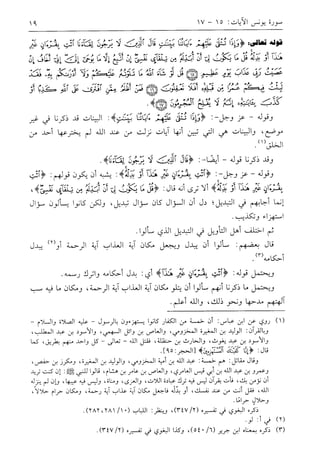 سورة يونس الآيات: ١٥ - ١٧
١٩
قوله تعالى: ﴿وَإِذَا تُتْلَى عَلَيْهِمْ آيَاتُنَا بَيِّنَاتٍ قَالَ الَّذِينَ لَا يَرْجُونَ لِقَاءَنَا ائْتِ بِقُرْآنٍ غَيْرِ
وقوله - عز وجل-: البينات قد ذكرنا في غير
موضع، والبينات هي التي تبين أنها آيات نزلت من عند الله لم يخترعها أحد من
الخلق(١).
وقد ذكرنا قوله - أيضًا-: ﴿قَالَ الَّذِينَ لَا يَرْجُونَ لِقَاءَنَا﴾.
وقوله - عز وجل-: ﴿ائْتِ بِقُرْآنٍ غَيْرِ هَذَا أَوْ بَدِّلْهُ﴾: يشبه أن يكون قولهم: ﴿ائْتِ
بِقُرْآنٍ غَيْرِ هَذَا أَوْ بَدِّلْهُ﴾ ألا ترى أنه قال:
إنما أجابهم في التبديل؛ دل أن السؤال كان سؤال تبديل، ولكن كانوا يسألون سؤال
استهزاء وتكذيب.
ثم اختلف أهل التأويل في التبديل الذي سألوا.
قال بعضهم: سألوا أن يبدل ويجعل مكان آية العذاب آية الرحمة أو(٢) يبدل
أحكامه(٣).
ويحتمل قوله: ﴿ائْتِ بِقُرْآنٍ غَيْرِ هَذَا أَوْ بَدِّلْهُ﴾ أي: بدل أحكامه واترك رسمه.
ويحتمل ما ذكرنا أنهم سألوا أن يتلو مكان آية العذاب آية الرحمة، ومكان ما فيه سب
آلهتهم مدحها ونحو ذلك، والله أعلم.
(١) روي عن ابن عباس: أن خمسة من الكفار كانوا يستهزءون بالرسول - عليه الصلاة والسلام -
وبالقرآن: الوليد بن المغيرة المخزومي، والعاص بن وائل السهمي، والأسود بن عبد المطلب،
والأسود بن عبد يغوث، والحارث بن حنظلة، فقتل الله - تعالى - كل واحد منهم بطريق، كما
قال: ﴿إِنَّا كَفَيْنَاكَ الْمُسْتَهْزِئِينَ﴾ [الحجر: ٩٥].
وقال مقاتل: هم خمسة: عبد الله بن أمية المخزومي، والوليد بن المغيرة، ومكرز بن حفص،
وعمرو بن عبد الله بن أبي قيس العامري، والعاص بن عامر بن هشام، قالوا للنبي ﷺ: إن كنت تريد
أن نؤمن بك، فأت بقرآن ليس فيه ترك عبادة اللات، والعزى، ومناة، وليس فيه عيبها، وإن لم ينزله
الله، فقل أنت من عند نفسك، أو بدِّله فاجعل مكان آية عذاب آية رحمة، ومكان حرام حلالًا،
وحلالٍ حرامًا.
ذكره البغوي في تفسيره (٣٤٧/٢)، وينظر: اللباب (٢٨١/١٠، ٢٨٢).
(٢) في أ: لو.
(٣) ذكره بمعناه ابن جرير (٥٤٠/٦)، وكذا البغوي في تفسيره (٣٤٧/٢).